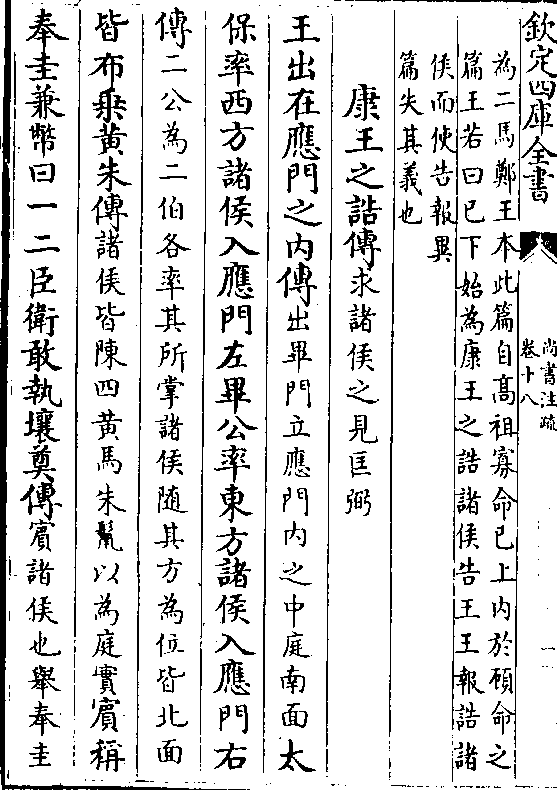 欽定四庫全書
尚書注疏
卷十八
一
為二馬鄭王本此篇自髙祖寡命已上内於顧命之
篇王若曰已下始為康王之誥諸侯告王王報誥諸
侯而使告報異
篇失其義也
康王之誥傳求諸侯之見匡弼
王出在應門之内傳出畢門立應門内之中庭南面太
保率西方諸侯入應門左畢公率東方諸侯入應門右
傳二公為二伯各率其所掌諸侯隨其方為位皆北面
皆布乗黄朱傳諸侯皆陳四黄馬朱鬛以為庭實賔稱
奉圭兼幣曰一二臣衛敢執壤奠傳賔諸侯也舉奉圭